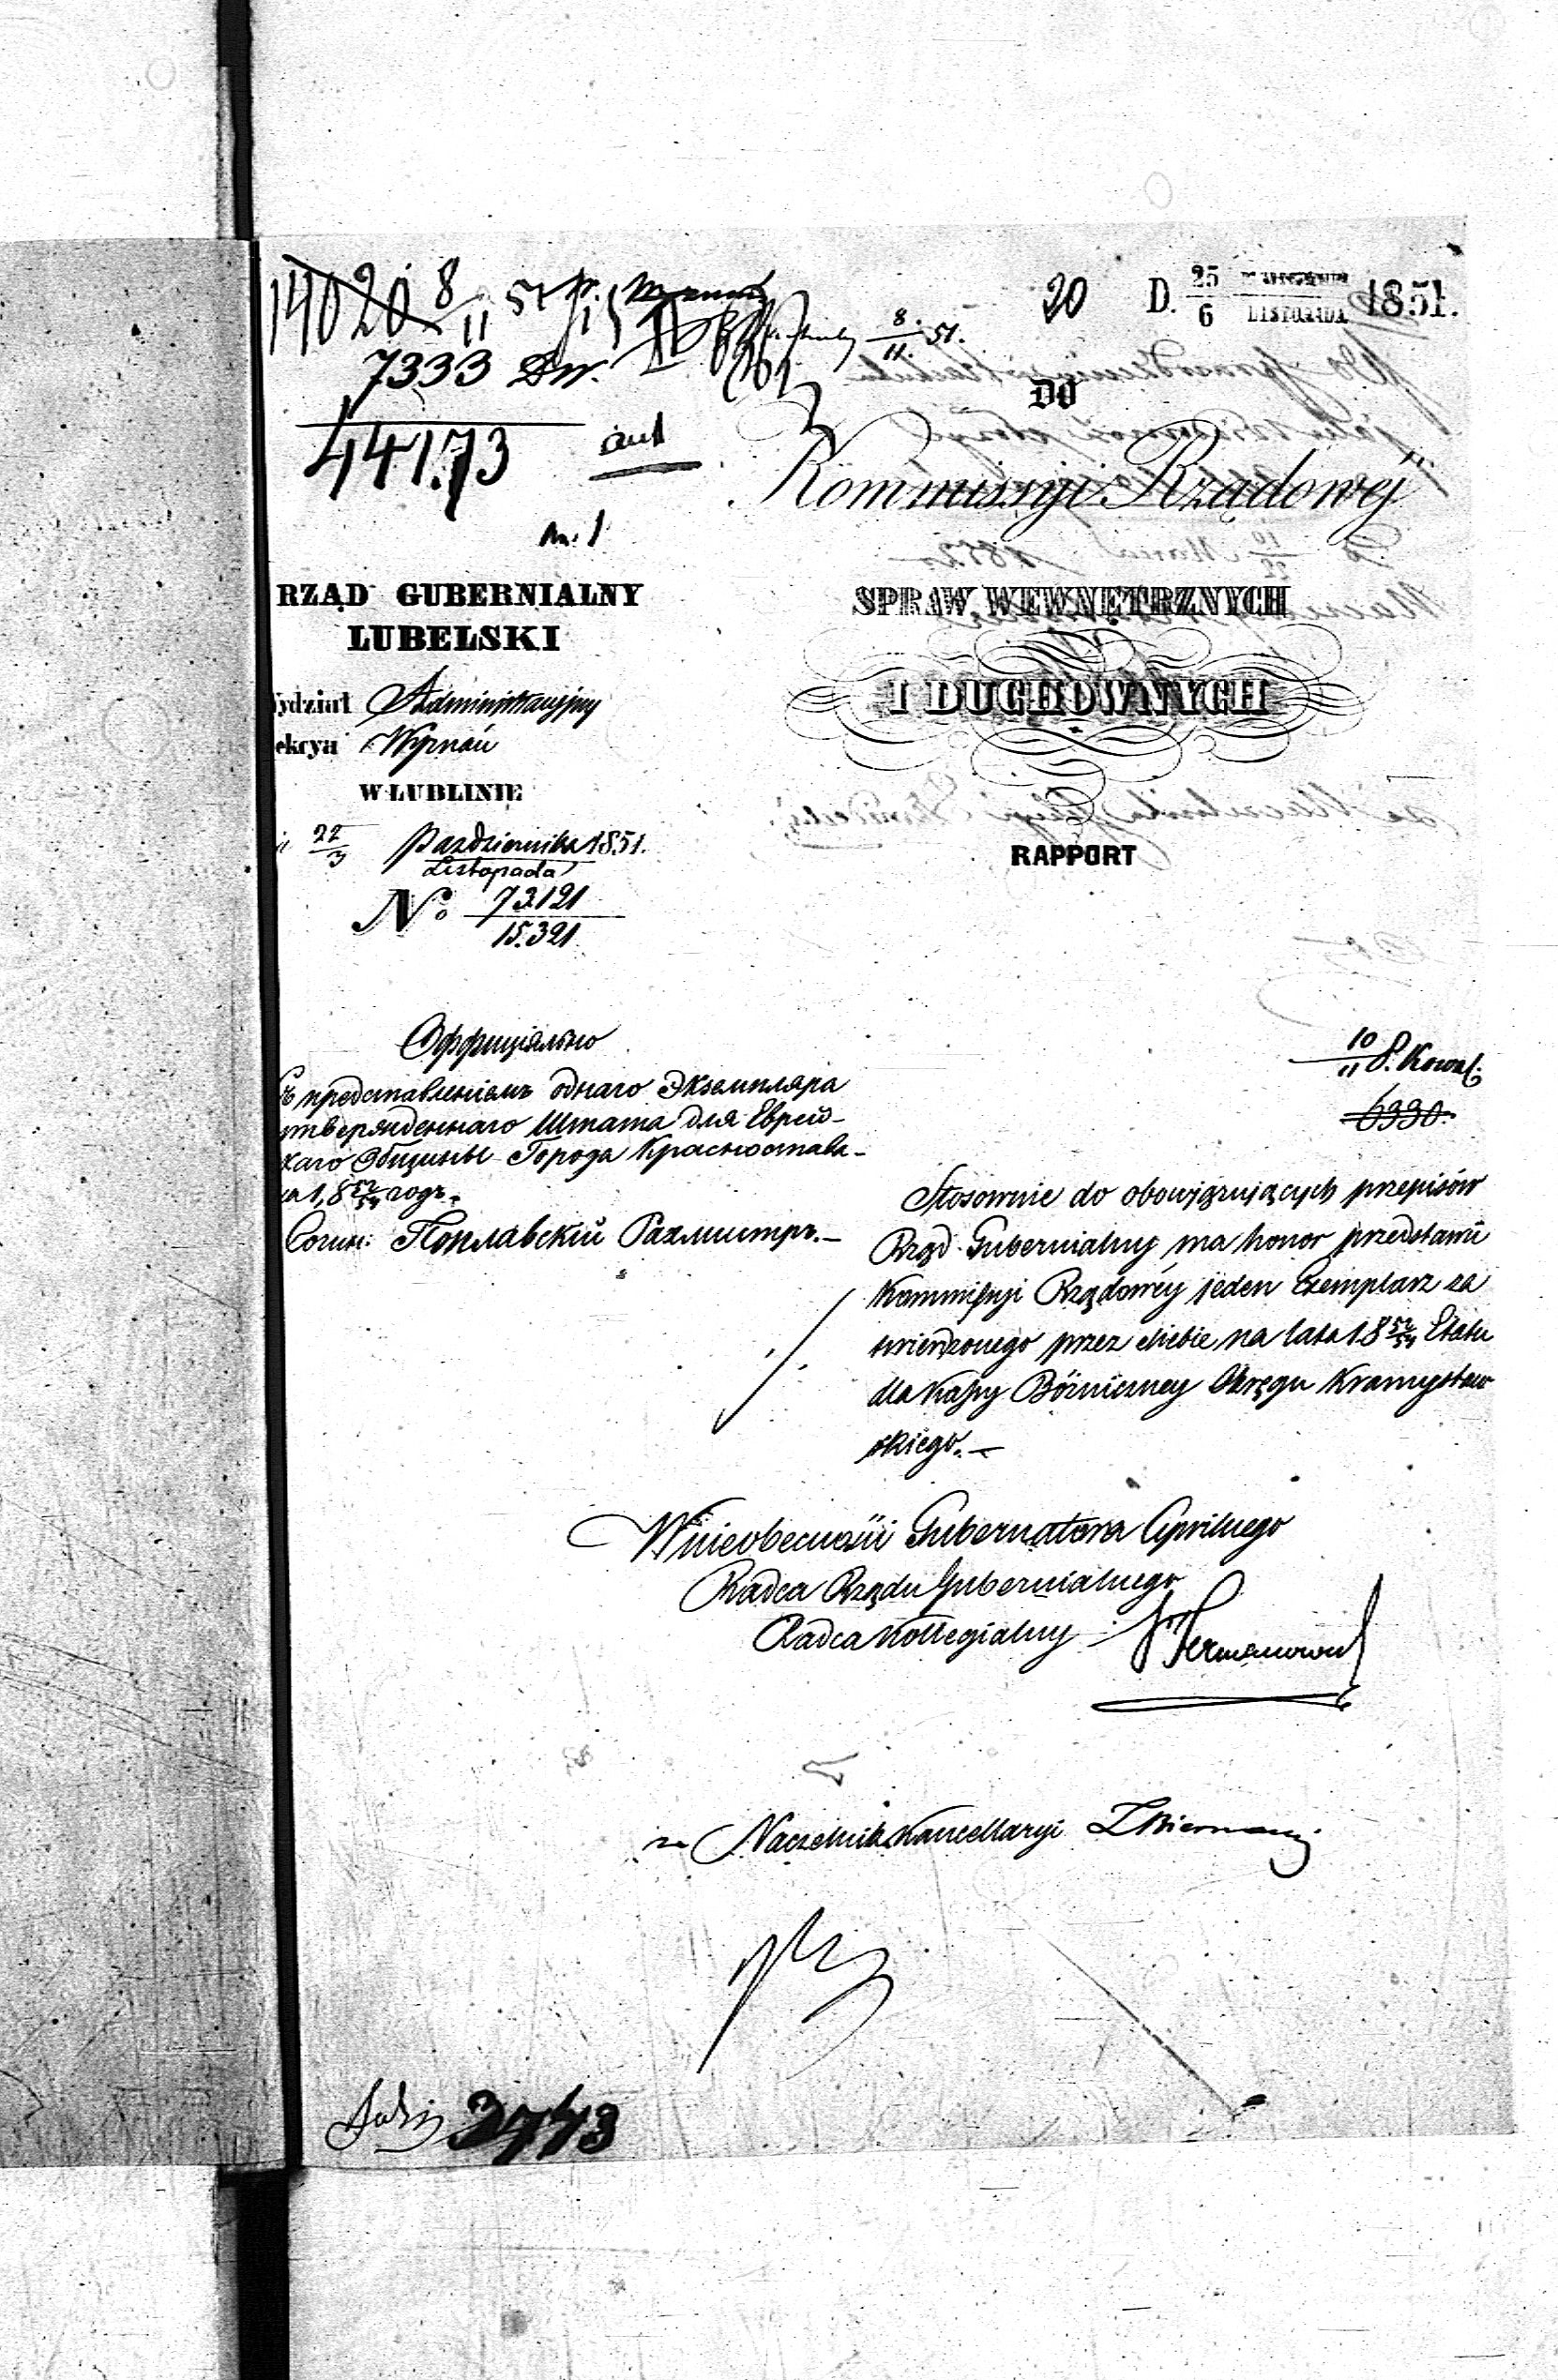 14020 8/11 51
7333 Dw.
44173
20 D. 25/6 PAZDZIERNIKA/LISTOPADA 1851.
8/11. 51.
DO
Kommissyi Rządowéj
SPRAW WEWNĘTRZNYCH
I DUCHOWNYCH
RAPPORT
RZĄD GUBERNIALNY
LUBELSKI
ydział Administracyjny
ekcya Wyznań
W LUBLINIE
22/3 Października/Listopada 1851.
No. 73.121/15.321
Оффиціяльно
Съ представленіемъ однаго Экземпляра
утвержденнаго Штата для Еврей-
скаго Общины Города Красностава-
на 18 52/54 годъ.
Сочин: Поплавскій Рахмистръ.
10/11 8. Kowal.
6330.
Stosownie do obowiązujących przepisów
Rząd Gubernialny ma honor przedstawić
Kommissyi Rządowéy jeden Exemplarz za
twierdzonego przez siebie na lata 18 52/54 Etatu
dla Kassy Bóżniczney Okręgu Krasnystaw
skiego.
W nieobecności Gubernatora Cywilnego
Radca Rządu Gubernialnego
Radca Kollegialny
za Naczelnik Kancellaryi
2773